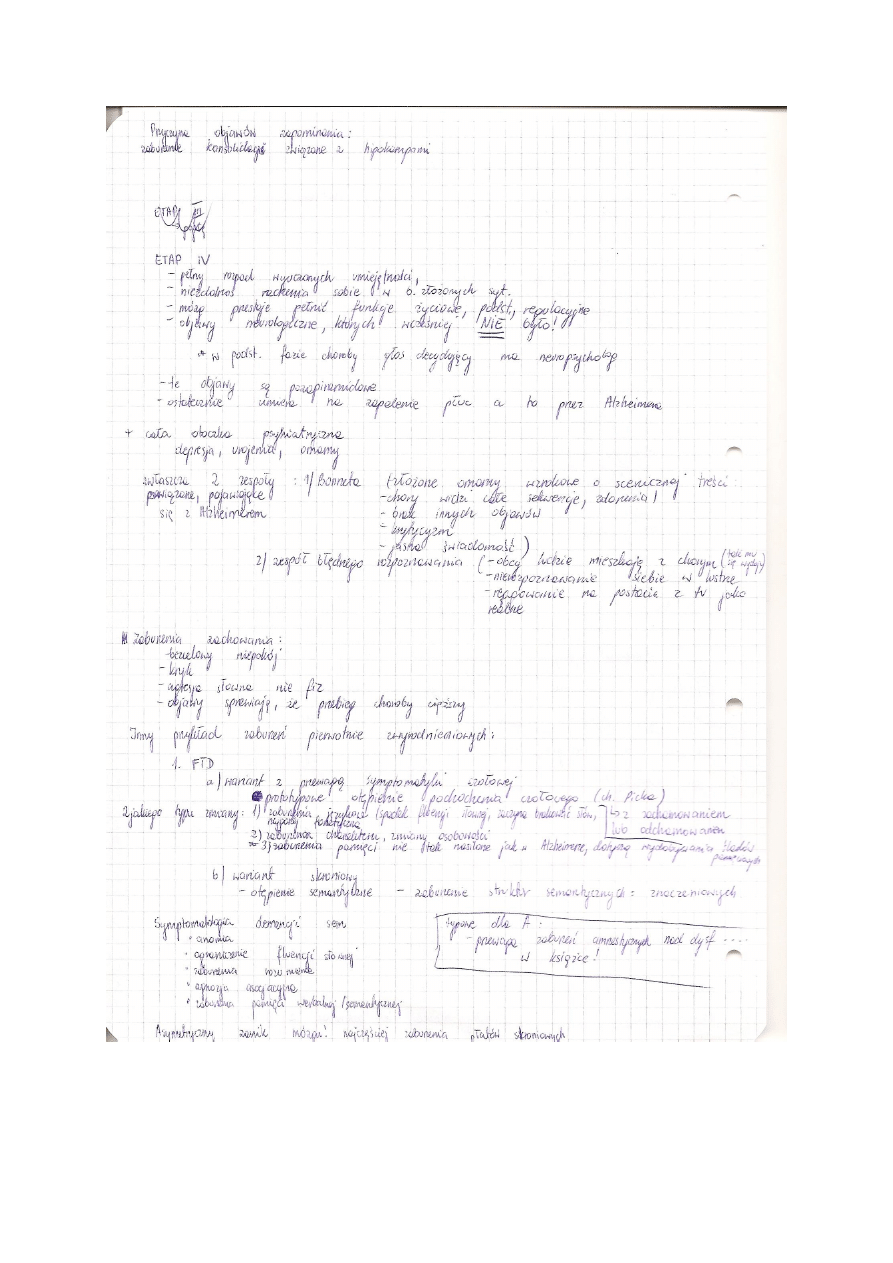 Przyczyna objawów zapominania:
zaburzenie konsolidacji związane z hipokampami
ETAP III
ETAP IV
- pełny rozpad wyuczonych umiejętności,
- niezdolność radzenia sobie w b. złożonych syt.
- mózg przestaje pełnić funkcje życiowe, podst, regulacyjne
- objawy neurologiczne, których wcześniej NIE było!
* w podst. fazie choroby głos decydujący ma neuropsycholog
- te objawy są pozapiramidowe
- ostatecznie umiera na zapalenie płuc a to przez Alzheimera
+ cała otoczka psychiatryczna
depresja, urojenia, omamy
zwłaszcza 2 zespoły : 1) Bonneta (złożone omamy wzrokowe o scenicznej treści:
powiązane, pojawiające - chory widzi całe sekwencje, zdarzenia!
się z Alzheimerem - brak innych objawów
- krytycyzm
- jasna świadomość)
2) zespół błędnego rozpoznawania (- obcy ludzie mieszkają z chorym (tak mu się wydaje)
- nierozpoznawanie siebie w lustrze
- reagowanie na postacie z tv jako
realne
Zaburzenia zachowania:
- bezcelowy niepokój
- krzyk
- agresja słowna nie fiz
- objawy sprawiają, że przebieg choroby cięższy
Inny przykład zaburzeń pierwotnie zwyrodnieniowych:
1. FTD
a) wariant z przewagą symptomatyki czołowej
prototypowe: otępienie pochodzenia czołowego (ch. Picka)
Z jakiego typu zmiany: 1) zaburzenia językowe (spadek fluencji słownej, zaczyna brakować słów, z zahamowaniem
lub odhamowaniem
2) zaburzenia charakteru, zmiany osobowości
* 3) zaburzenia pamięci nie tak nasilone jak w Alzheimerze, dotyczą wydobywania śladów
pamięciowych
b) wariant skroniowy
- otępienie semantyczne - zaburzenie struktur semantycznych = znaczeniowych
Symptomatologia demencji sem
• anomia
• ograniczenie fluencji słownej
• zaburzenia rozumienia
• agnozja asocjacyjna
• zaburzenia pamięci werbalnej/semantycznej
typowe dla A:
- przewaga zaburzeń amnestycznych nad dysf ....
w książce!
Asymetryczny zanik mózgu: najczęściej zaburzenia płatów skroniowych